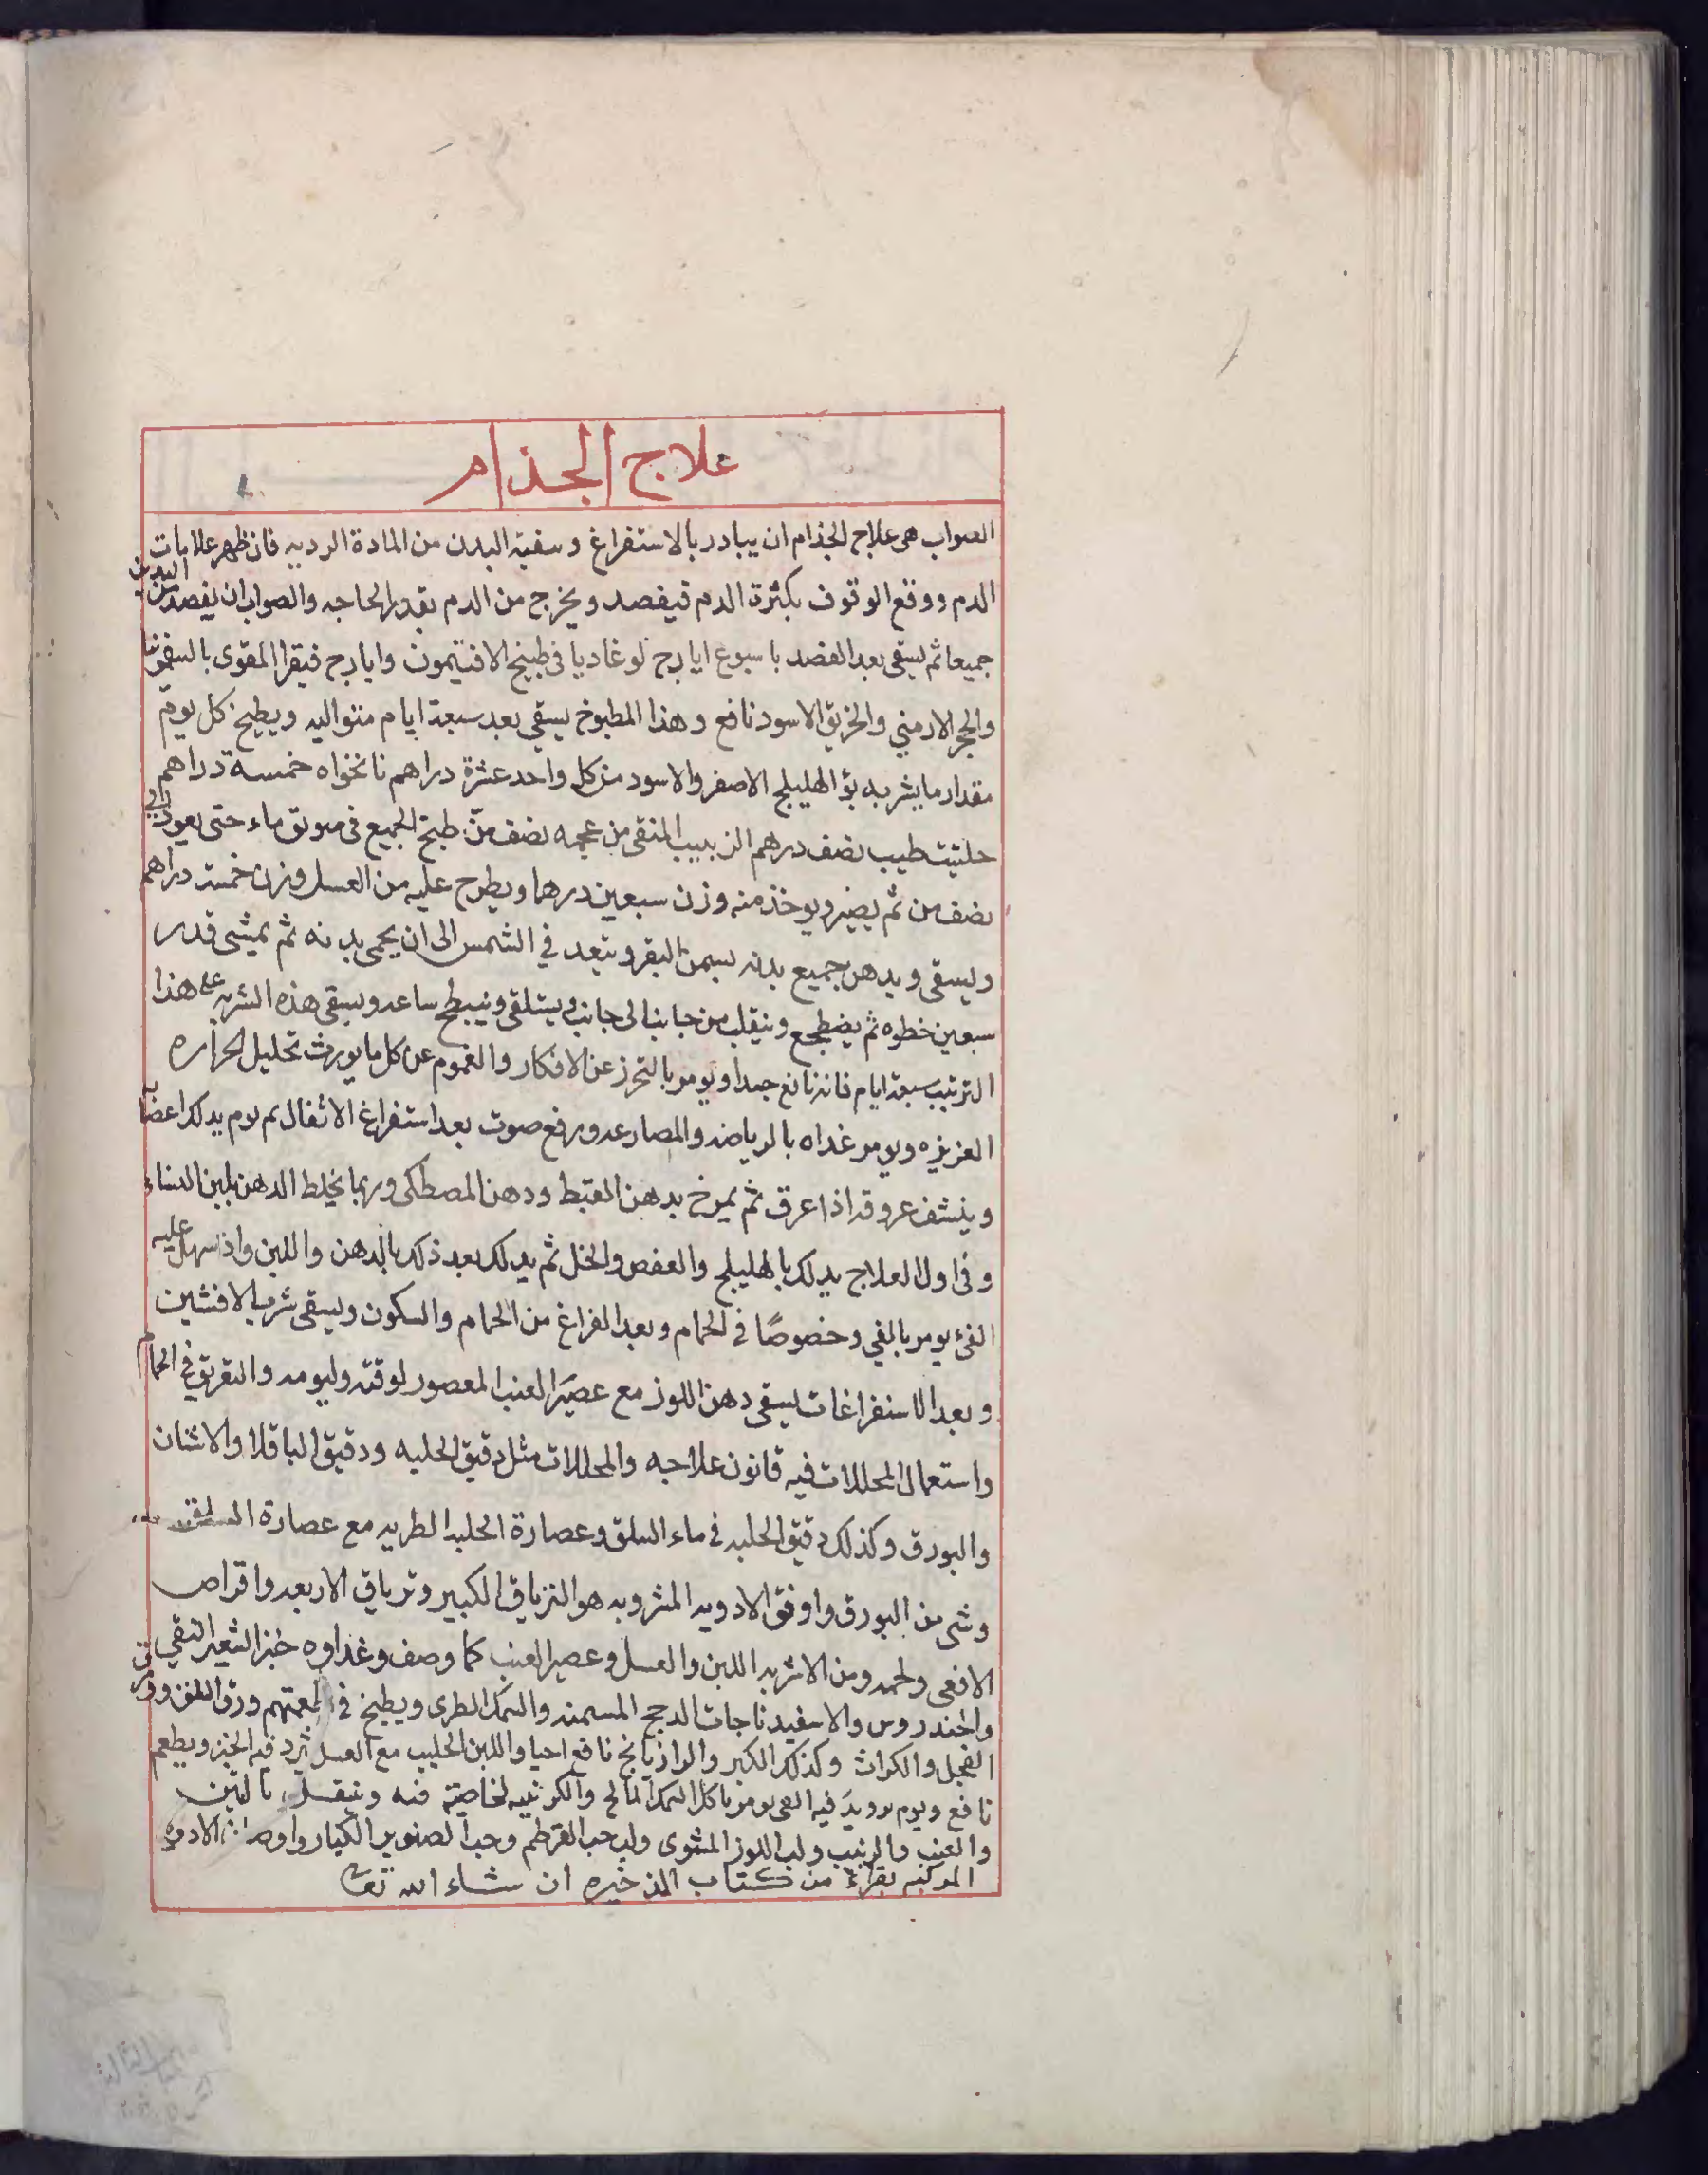 علاج الجذام
الصواب هى علاج الجذام ان يبادر بالاستفراغ وسفيه البدن من المادة الرديه فان ظهر علامات
الدم ووقع الوقوف بكثرة الدم فيفصد ويخرج من الدم بقدر الحاجه والصواب ان يفصد من اليدين
جميعا ثم يسقى بعد الفصد باسبوع ايارج لوغاديا فى طبيخ الافتيمون وايارج فيقرا المقوى بالسقمونيا
والحجر الارمني والخربق الاسود نافع وهذا المطبوخ يسقي بعد سبعة ايام متواليه ويطبخ كل يوم
مقدار ما يشربه يؤ الهليلج الاصفر والاسود من كل واحد عشرة دراهم نانخواه خمسة دراهم
حلتيت طيب نصف درهم الزبيب المنقى من عجمه نصف منّ طبخ الجميع فى ماء حتى يعود الى
نصف من ثم يصير ويوخذ منه وزن سبعين درهما ويطرح عليه من العسل وزن خمسة دراهم
ويسقى ويدهن جميع بدنه بسمن البقر ويتعد في الشمس الى ان يحمى بدنه ثم يمشى قدر
سبعين خطوه ثم يضطجع وينقلب من جانب الى جانب ويستلقى وينبطح ساعه ويسقى هذه الشربه على هذا
الترتيب سبعة ايام فانه نافع جدا ويومر بالتحرز عن الافكار والغموم عن كل ما يورث تحليل الحراره
العزيزه ويومر غداه بالرياضه والمصارعه ورفع صوت بعد استفراغ الاثفال ثم يوم يدلك اعضا
وينشف عروقه اذا عرق ثم يمرخ بدهن القبط ودهن المصطكى وربما يخلط الدهن بلبن النساء
وفى اول العلاج يدلك بالهليلج والعفص والخل ثم يدلك بعد ذلك بالدهن واللبن واذ سهل عليه
القئ يومر بالقي وخصوصًا فى الحمام وبعد الفراغ من الحمام والسكون ويسقى شربه الافسنتين
وبعد الاستفراغات يسقى دهن اللوز مع عصير العنب المعصور لوقته وليومه والتعريق فى الحمام
واستعمال المحللات فيه قانون علاجه والمحللات مثل دقيق الحلبه ودقيق الباقلا والاشنان
والبورق وكذلك دقيق الحلبه فى ماء السلق وعصارة الحلبه الطريه مع عصارة السلق
وشى من البورق واوفق الادويه المشروبه هو الترياق الكبير وترياق الاربعه واقراص
الافعى ولحمه ومن الاشربه اللبن والعسل وعصير العنب كما وصف وغداوه خبز الشعير النقي
والخندروس والاسفيدناجات الدجج المسمنه والسمك الطرى ويطبخ فى اطعمتهم ورق السلق وورق
الفجل والكراث وكذلك الكبر والرازيانج نافع احيا واللبن الحليب مع العسل ثرد فيه الخبز ويطعم
نافع ويوم يريد فيه القى يومر باكل السمك المالح والكرنبيه لخاصيته فيه وينتقل بالتين
والعنب والزبيب ولب اللوز المشوى ولب حب القرطم وحب الصنوبر الكبار واوصاف الادويه
المركبه تقراء من كتاب الذخيره ان شاء الله تعا